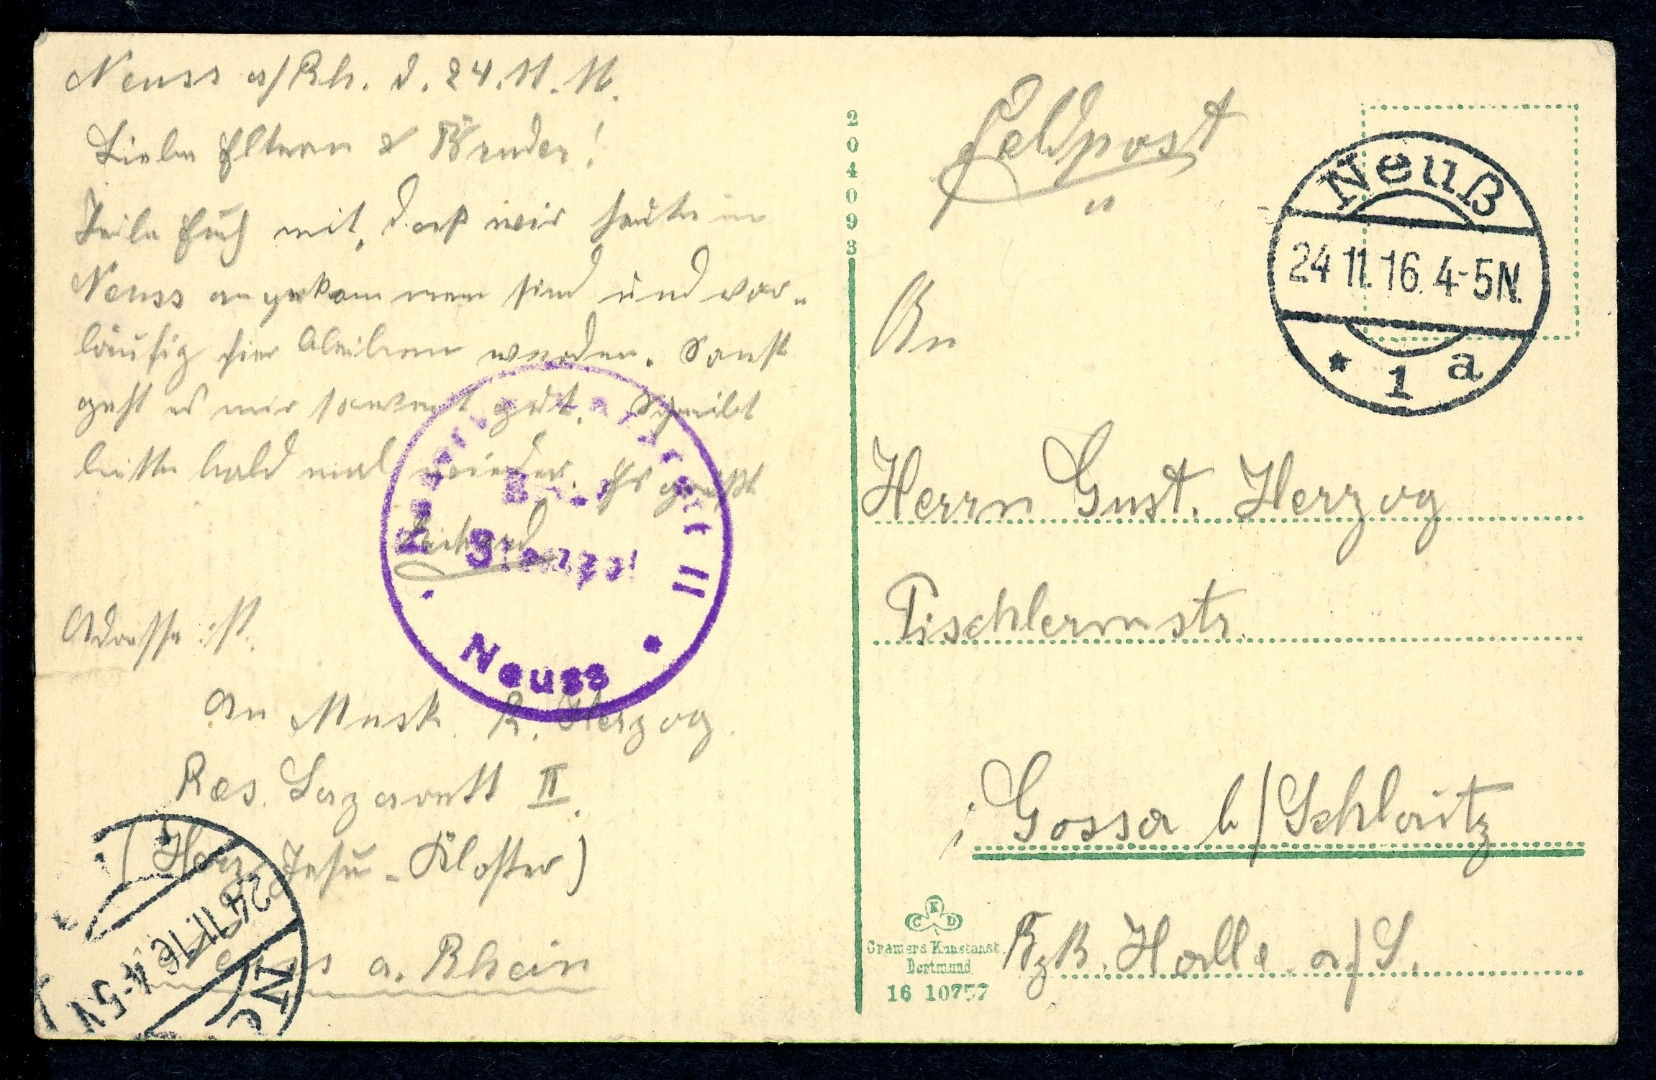 Neuss a/Rh. d. 24.11.16.
Liebe Eltern & Bruder!
Teile Euch mit, daß wir heute in
Neuss angekommen sind und vor-
läufig hier bleiben werden. Sonst
geht es mir soweit gut. Schreibt
bitte bald mal wieder. Es grüßt
Richard
Adresse ist.
An Musk. R. Herzog
Res. Lazarett II.
(Herz-Jesu-Kloster)
Neuss a. Rhein
Lazarett II
Neuss
24.11.16. 4-5N
204093
Feldpost
Neuß
24.11.16. 4-5N.
* 1 a
An
Herrn Gust. Herzog
Tischlermstr.
i Gossa b/Schlaitz
Bzk. Halle a/S.
CKD
Cramers Kunstanst.
Dortmund
16 10757